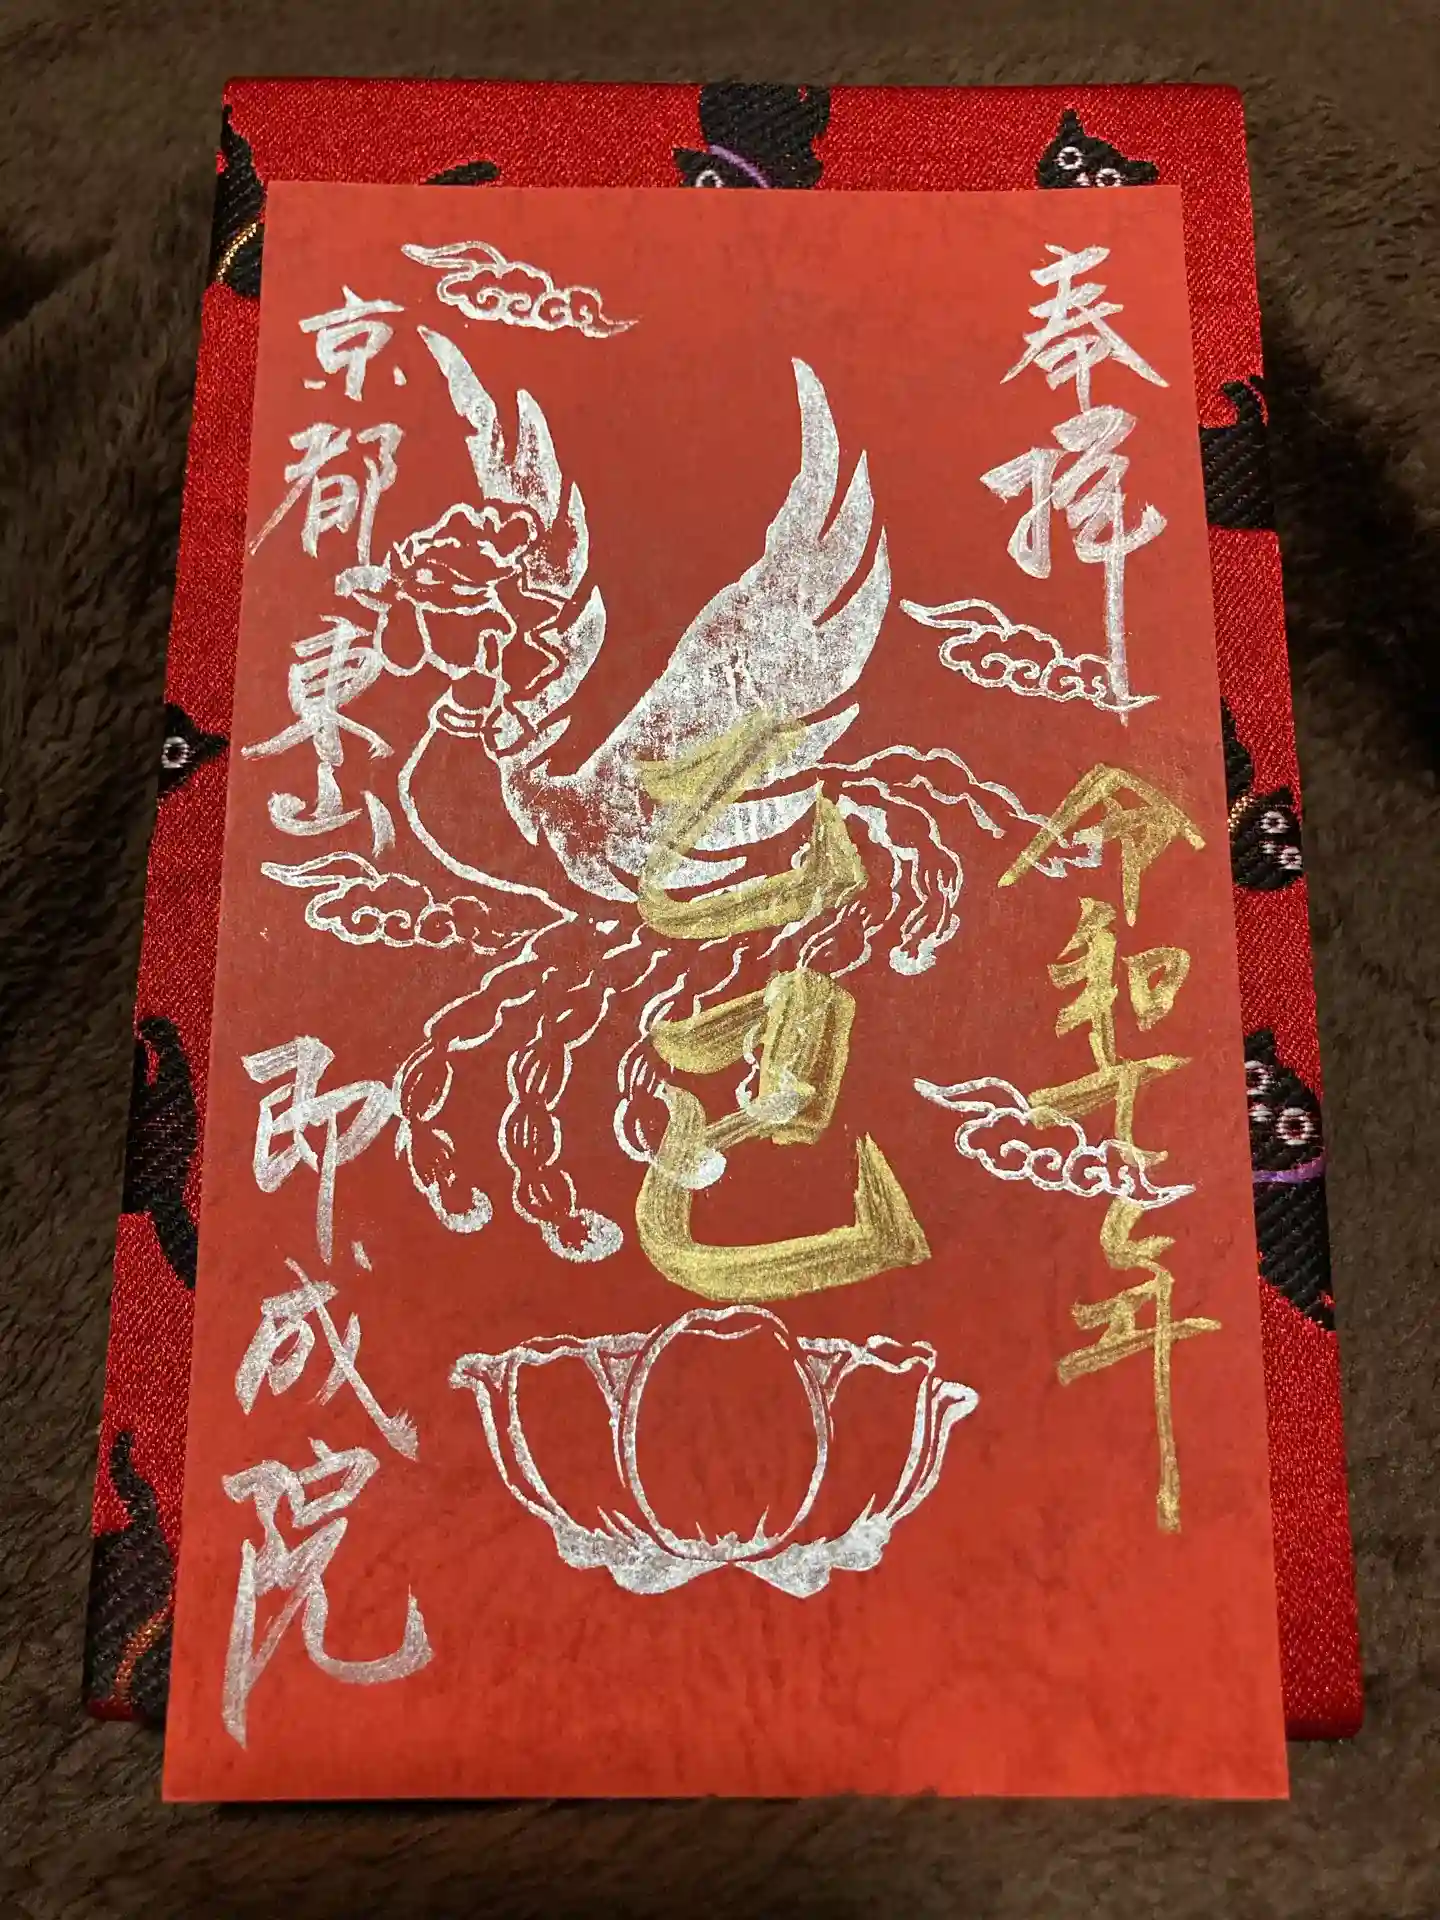 奉拝 令和七年
乙巳
京都東山 即成院